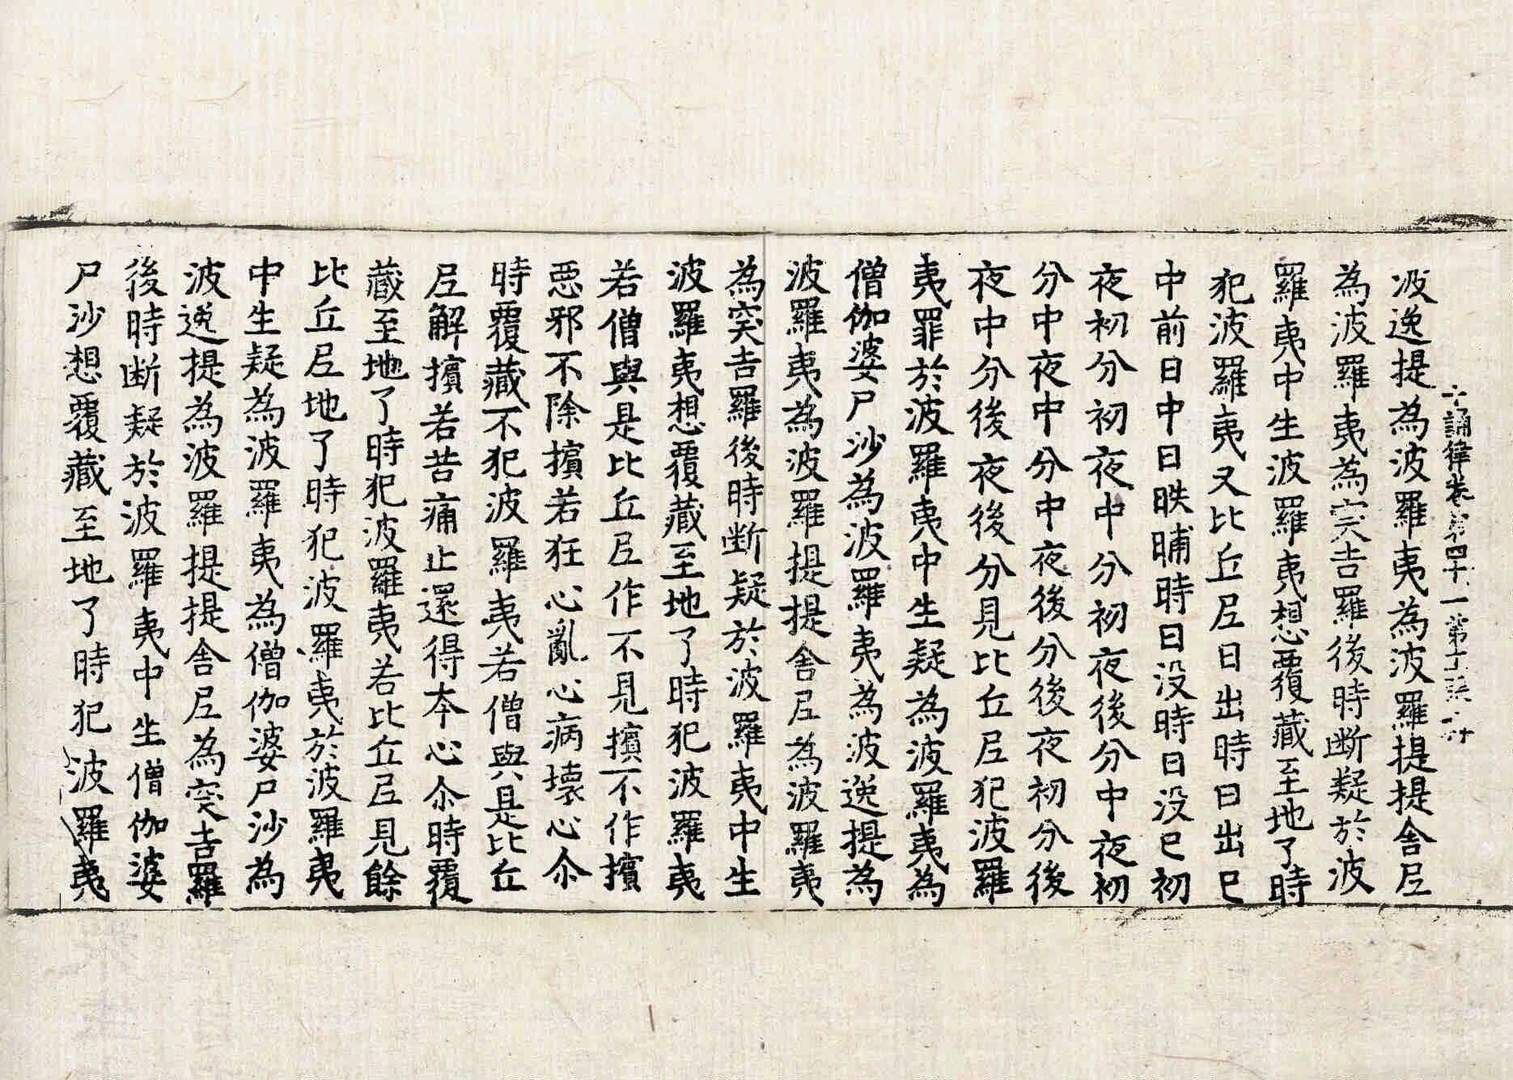 十誦律卷第四十一 第十張
波逸提為波羅夷為波羅提提舍尼
為波羅夷為突吉羅後時断疑於波
羅夷中生波羅夷想覆藏至地了時
犯波羅夷又比丘尼日出時日出已
中前日中日昳晡時日没時日没已初
夜初分初夜中分初夜後分中夜初
分中夜中分中夜後分後夜初分後
夜中分後夜後分見比丘尼犯波羅
夷罪於波羅夷中生疑為波羅夷為
僧伽婆尸沙為波羅夷為波逸提為
波羅夷為波羅提提舍尼為波羅夷
為突吉羅後時断疑於波羅夷中生
波羅夷想覆藏至地了時犯波羅夷
若僧與是比丘尼作不見擯不作擯
惡邪不除擯若狂心亂心病壞心尒
時覆藏不犯波羅夷若僧與是比丘
尼解擯若苦痛止還得本心尒時覆
藏至地了時犯波羅夷若比丘尼見餘
比丘尼地了時犯波羅夷於波羅夷
中生疑為波羅夷為僧伽婆尸沙為
波逸提為波羅提提舍尼為突吉羅
後時断疑於波羅夷中生僧伽婆
尸沙想覆藏至地了時犯波羅夷